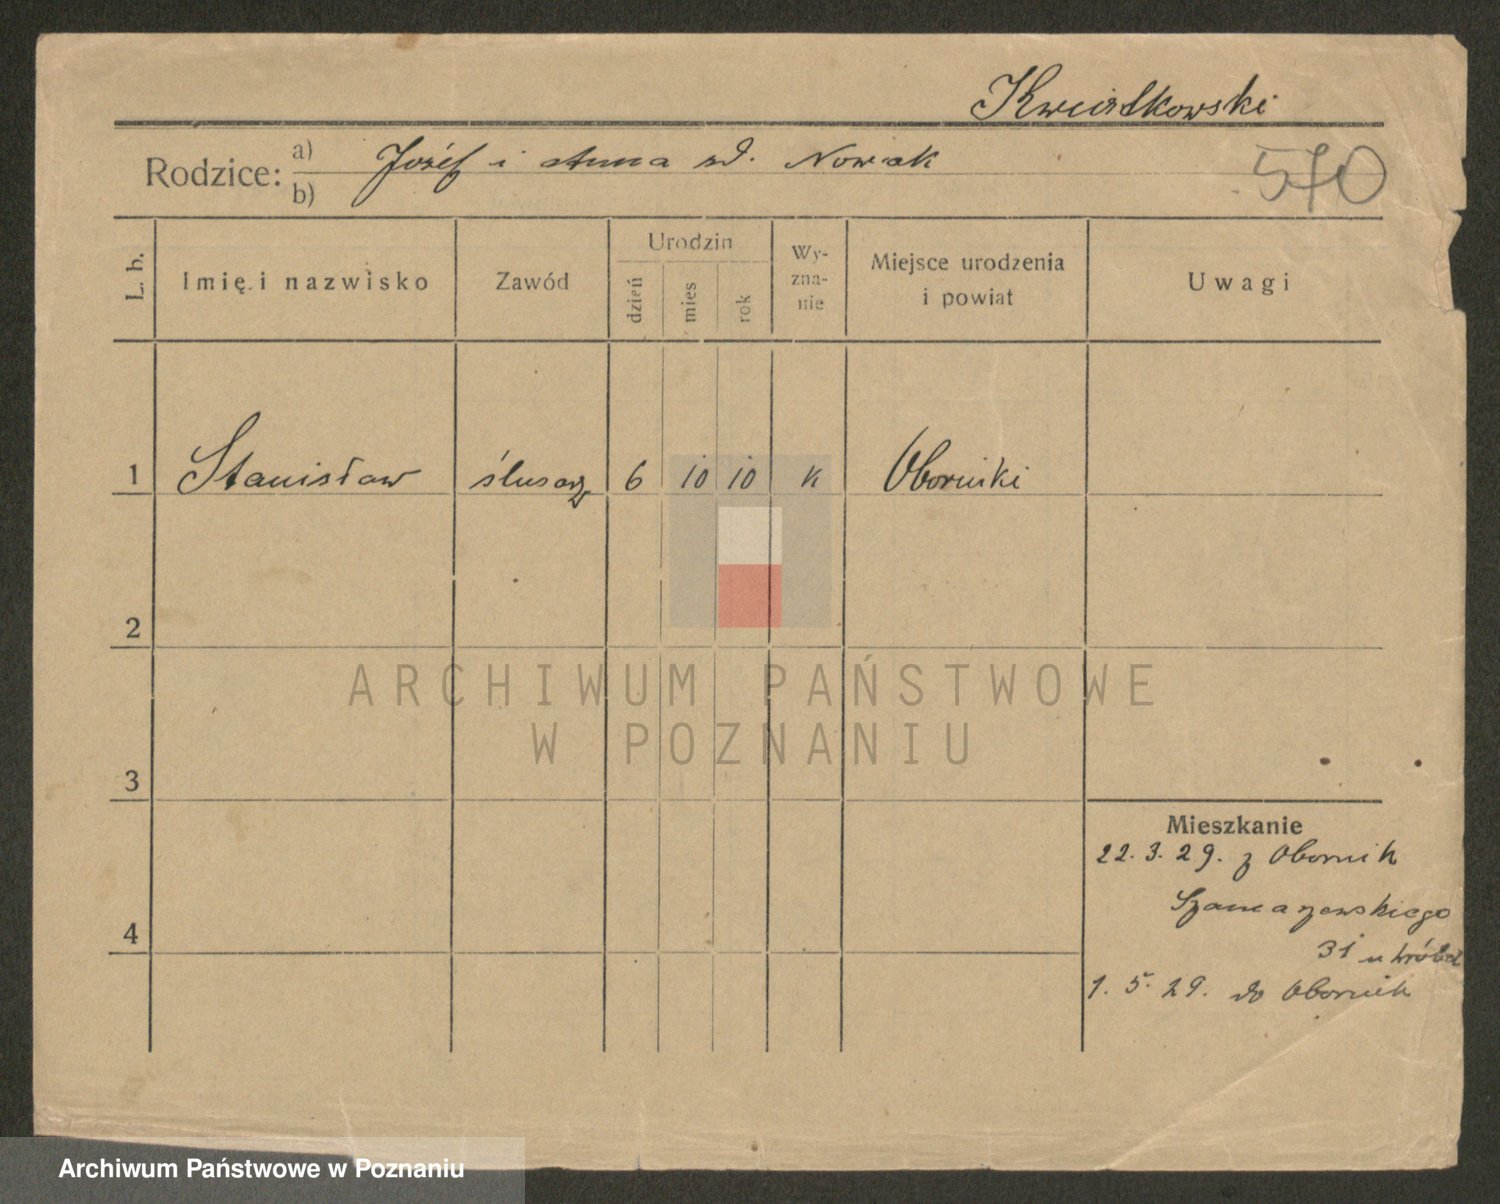 Kwiatkowski
Rodzice: a) Józef i Anna zd. Nowak
b)
570
L. b.
Imię i nazwisko
Zawód
Urodzin
dzień
mies
rok
Wy-
zna-
nie
Miejsce urodzenia
i powiat
Uwagi
1 Stanisław ślusarz 6 10 10 k Oborniki
2
3
4
ARCHIWUM PAŃSTWOWE
W POZNANIU
Mieszkanie
22. 3. 29. z Obornik
31 u
1. 5. 29. do Obornik
Archiwum Państwowe w Poznaniu